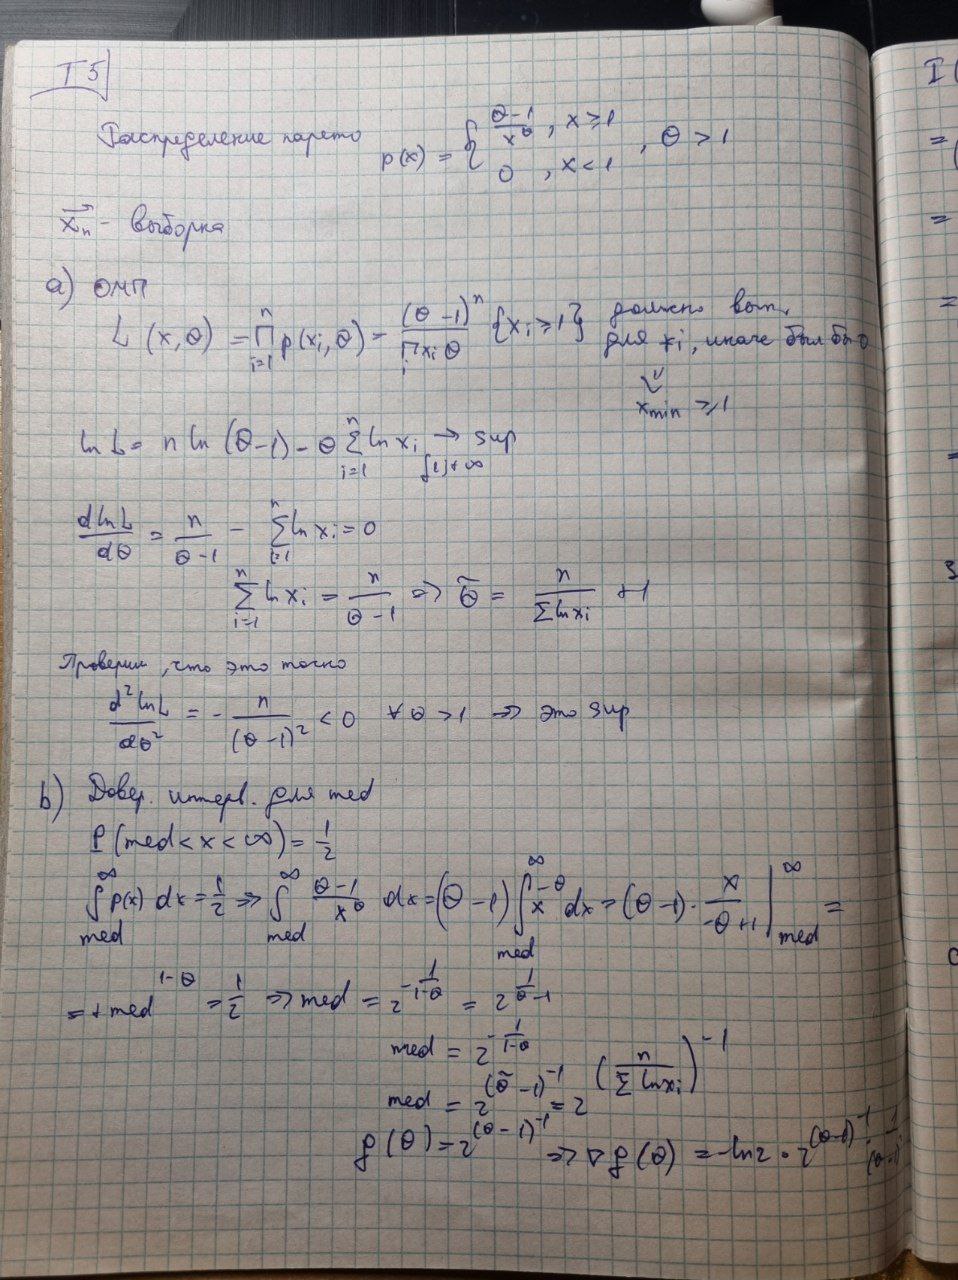 T5
Распределение парето p(x) = { (θ-1)/x^θ, x ≥ 1 ; 0, x < 1 , θ > 1
x⃗ₙ - выборка
a) ОМП
L(x,θ) = ∏_{i=1}^{n} p(xᵢ,θ) = (θ-1)^n / ∏_i xᵢ^θ {xᵢ ≥ 1} должно вып.
для xᵢ, иначе был бы 0
⇓
x_min ≥ 1
ln L = n ln(θ-1) - θ ∑_{i=1}^{n} ln xᵢ → sup
d ln L / dθ = n/(θ-1) - ∑_{i=1}^{n} ln xᵢ = 0
∑_{i=1}^{n} ln xᵢ = n/(θ-1) ⇒ θ̃ = n/(∑ ln xᵢ) + 1
Проверим, что это точно
d² ln L / dθ² = - n/(θ-1)² < 0 ∀ θ > 1 ⇒ это sup
b) Довер. интерв. для med
P(med < x < ∞) = 1/2
∫_{med}^{∞} p(x) dx = 1/2 ⇒ ∫_{med}^{∞} (θ-1)/x^θ dx = (θ-1) ∫_{med}^{∞} x^{-θ} dx = (θ-1) · x/(-θ+1) |_{med}^{∞} =
= + med^{1-θ} = 1/2 ⇒ med = 2^{-1/(1-θ)} = 2^{1/(θ-1)}
med = 2^{-1/(1-θ)}
med = 2^{(θ̃-1)^{-1}} = 2^{(n/(∑ ln xᵢ))^{-1}}
g(θ) = 2^{(θ-1)^{-1}} ⇒ ∇g(θ) = -ln2 · 2^{(θ-1)^{-1}} ·